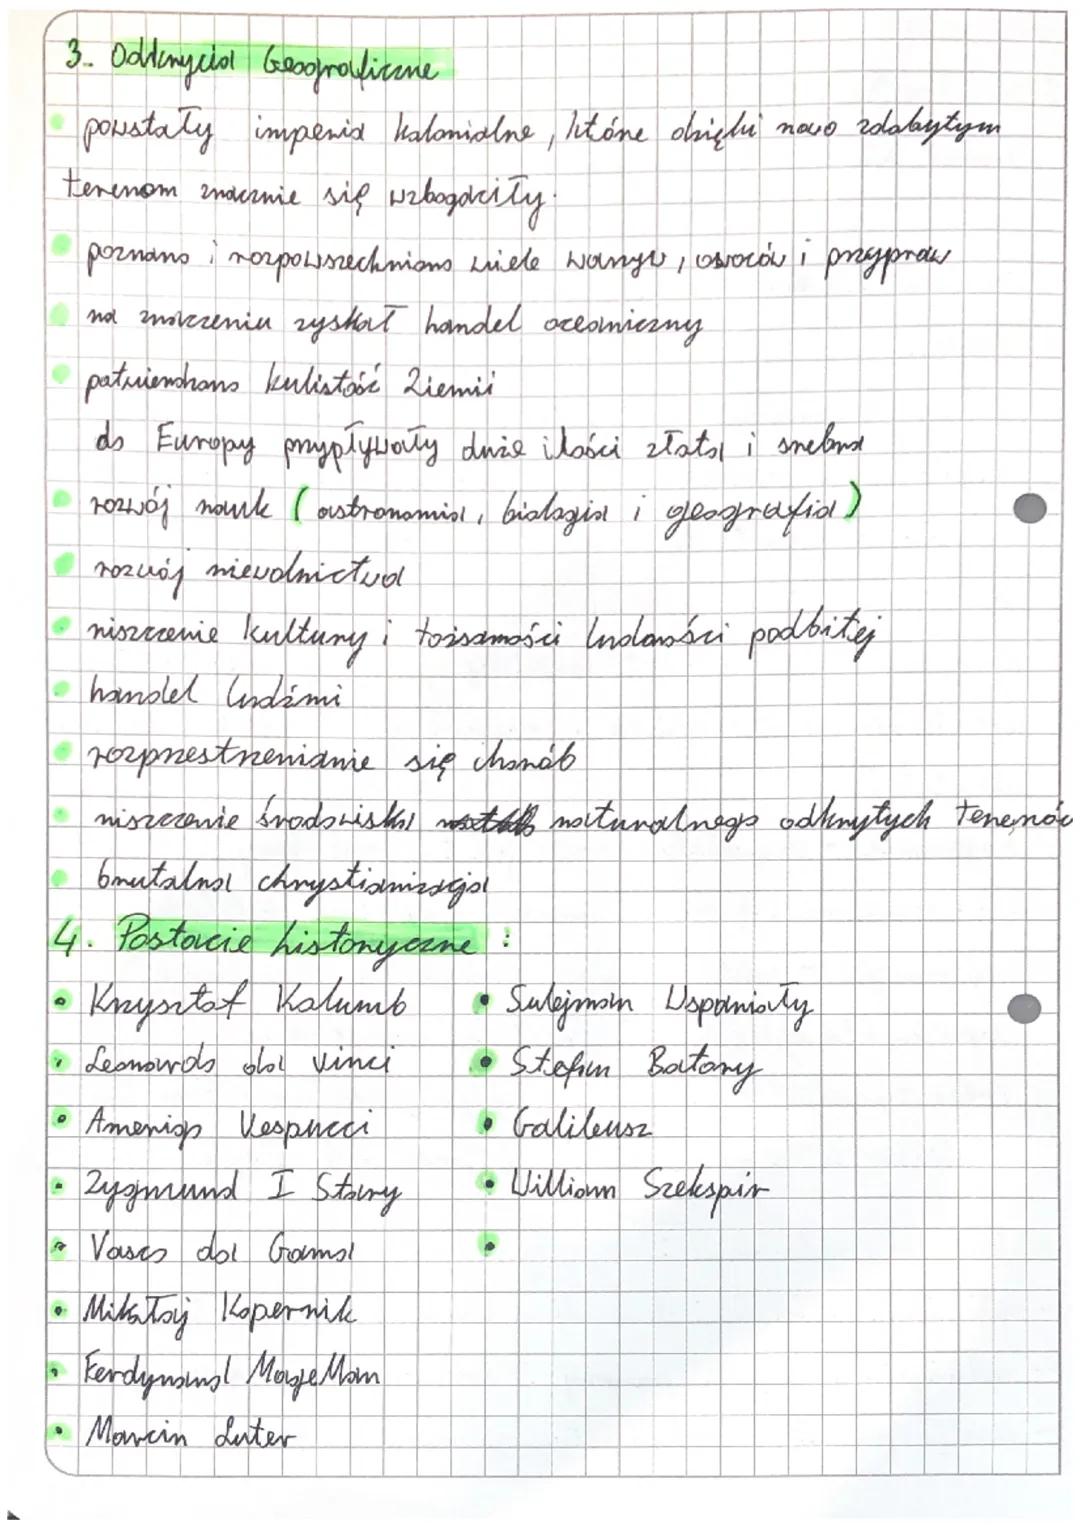 3. Odkrycia Geograficzne
• powstały imperia kolonialne, które dzięki nowo zdobytym
terenom znacznie się wzbogaciły.
• poznano i rozpowszechniono wiele warzyw, owoców i przypraw
• na znaczeniu zyskał handel oceaniczny
• potwierdzono kulistość Ziemii
do Europy przypływały duże ilości złota i srebra
• rozwój nauk (astronomia, biologia i geografia)
• rozwój niewolnictwa
• niszczenie kultury i tożsamości ludności podbitej
• handel ludźmi
• rozprzestrzenianie się chorób
• niszczenie środowiska naturalnego odkrytych terenów
• brutalna chrystianizacja
4. Postacie historyczne :
• Krzysztof Kolumb
• Leonardo da vinci
• Amerigo Vespucci
• Zygmund I Stary
• Vasco da Gama
• Mikołaj Kopernik
• Ferdynand Magellan
• Marcin Luter
• Sulejman Wspaniały
• Stefan Batory
• Galileusz
• William Szekspir
•